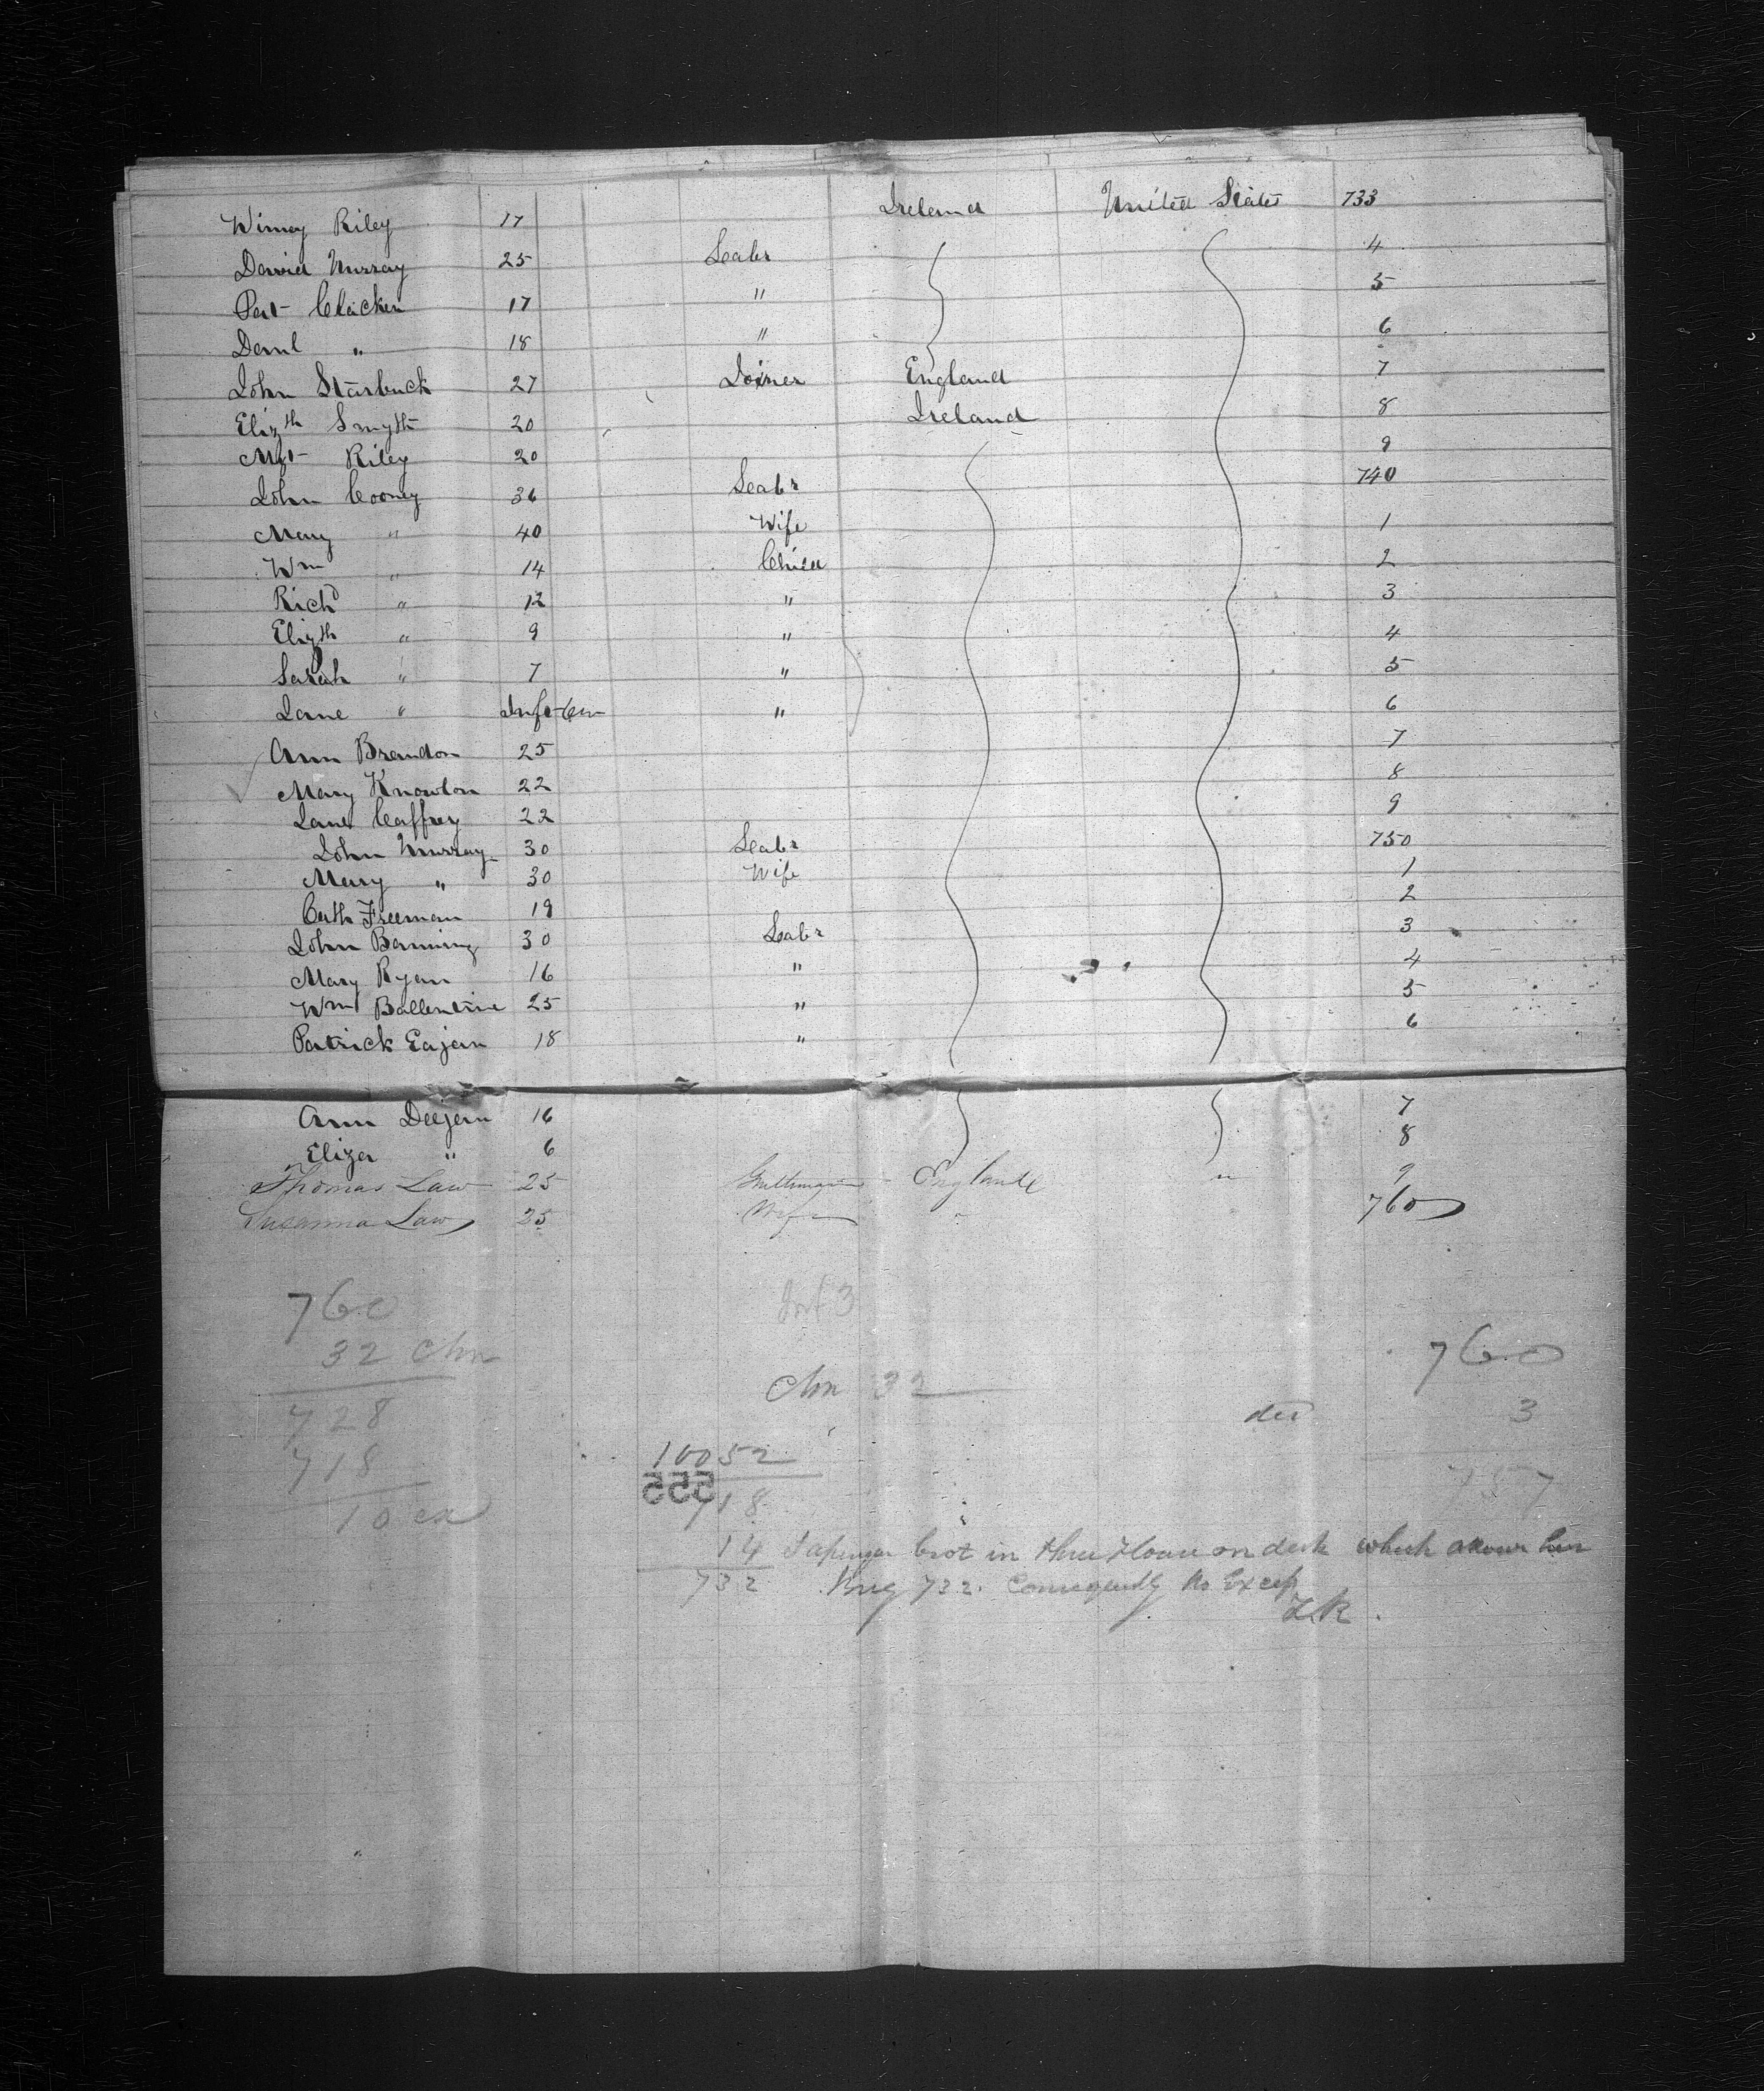 Winney Riley 17 Ireland United States 733
David Murray 25 Labr 4
Pat Clacken 17 " 5
Danl " 18 " 6
John Starbuck 27 Joiner England 7
Elizth Smyth 20 Ireland 8
Mgt Riley 20 9
John Cooney 36 Labr 740
Mary " 40 Wife 1
Wm " 14 Child 2
Richd " 12 " 3
Elizth " 9 " 4
Sarah " 7 " 5
Jane " Inft " 6
Ann Brandon 25 7
Mary Knowlon 22 8
Jane Caffrey 22 9
John Murray 30 Labr 750
Mary " 30 Wife 1
Cath Freeman 19 2
John Banning 30 Labr 3
Mary Ryan 16 " 4
Wm Ballentine 25 " 5
Patrick Eagan 18 " 6
Ann Deegan 16 7
Eliza " 6 8
Thomas Law 25 Gentleman England " 9
Susanna Law 25 Wife 760
760 Inf 3
32 Chn 760
Chn 32
728 ded 3
718 10052
555 757
10 ex 718
14 in three House on deck which allows her
732 732. Consequently No Excess